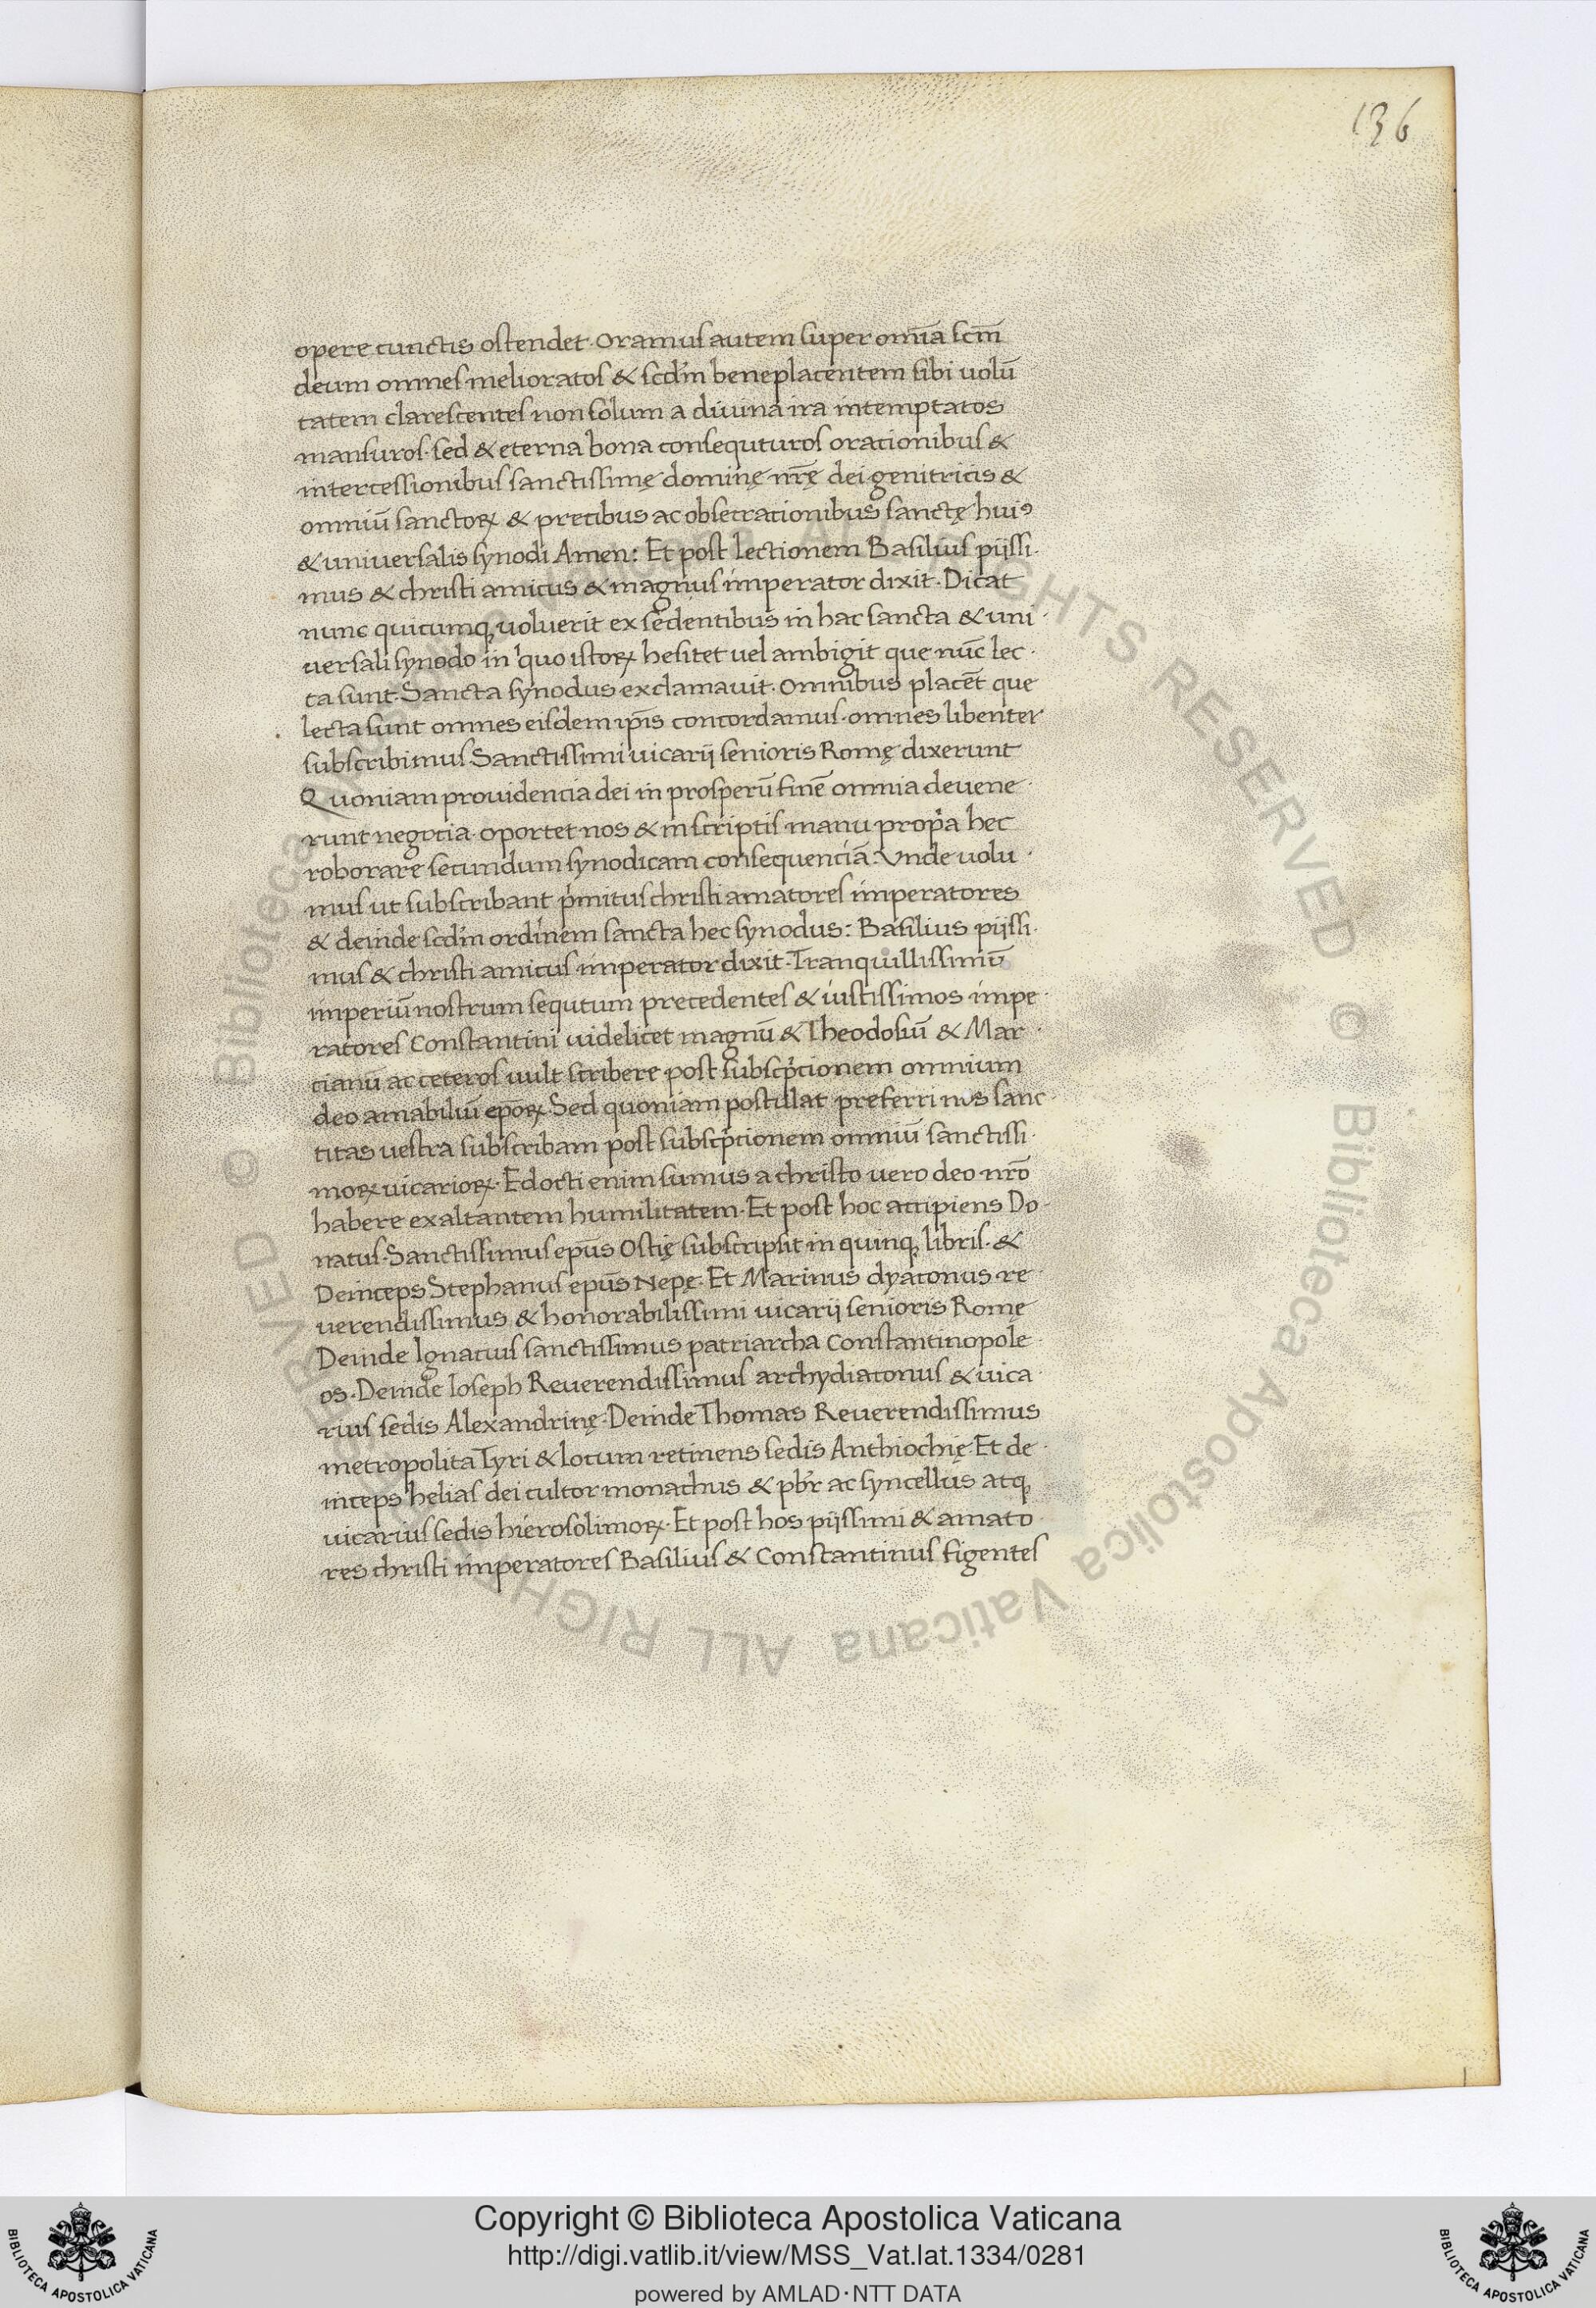 136
opere cunctis ostendet. Oramus autem super om̄ia scm̄
deum omnes melioratos & scd'm beneplacentem sibi volū
tatem clarescentes non solum a divina ira intemptatos
mansuros. sed & eterna bona consequturos orationibus &
intercessionibus sanctissimę dominę nr̄ę dei genitricis &
omniū sanctoꝝ & precibus ac obsecrationibus sanctę huiꝰ
& universalis synodi Amen: Et post lectionem Basilius pijssi·
mus & christi amicus & magnus imperator dixit. Dicat
nunc quicumqꝫ voluerit ex sedentibus in hac sancta & uni·
versali synodo in quo istoꝝ hesitet vel ambigit que nūc lec·
ta sunt. Sancta synodus exclamavit. Omnibus placēt que
lecta sunt omnes eisdem ip̄is concordamus. omnes libenter
subscribimus Sanctissimi vicarij senioris Romę dixerunt
Quoniam providencia dei in prosperū finē omnia devene·
runt negotia. oportet nos & in scriptis manu prop'a hec
roborare secundum synodicam consequenciā: Vnde volu·
mus ut subscribant p'mitus christi amatores imperatores
& deinde scd'm ordinem sancta hec synodus: Basilius pijssi·
mus & christi amicus imperator dixit. Tranquillissimū
imperiū nostrum sequtum precedentes & iustissimos impe·
ratores Constantini videlicet magnū & Theodosiū & Mar·
cianū ac ceteros vult scribere post subscp'cionem omnium
deo amabiliū ep̄oꝝ. Sed quoniam postulat preferri nos sanc·
titas vestra subscribam post subscp'cionem omniū sanctissi·
moꝝ vicarioꝝ. Edocti enim sumus a christo vero deo nr̄o
habere exaltantem humilitatem. Et post hoc accipiens Do·
natus. Sanctissimus ep̄us Ostię subscripsit in quinqꝫ libris. &
Deinceps Stephanus ep̄us Nepę. Et Marinus dyaconus re·
verendissimus & honorabilissimi vicarij senioris Romę
Deinde Ignatius sanctissimus patriarcha Constantinopole·
os. Deinde Ioseph Reverendissimus archydiaconus & vica·
rius sedis Alexandrinę. Deinde Thomas Reverendissimus
metropolita Tyri & locum retinens sedis Anthiochię. Et de·
inceps helias dei cultor monachus & pb'r ac syncellus atqꝫ
vicarius sedis hierosolimoꝝ. Et post hos pijssimi & amato·
res christi imperatores Basilius & Constantinus figentes
© Biblioteca Apostolica Vaticana ALL RIGHTS RESERVED © Biblioteca Apostolica Vaticana ALL RIGHTS RESERVED
Copyright © Biblioteca Apostolica Vaticana
http://digi.vatlib.it/view/MSS_Vat.lat.1334/0281
powered by AMLAD·NTT DATA
BIBLIOTECA APOSTOLICA VATICANA
BIBLIOTECA APOSTOLICA VATICANA